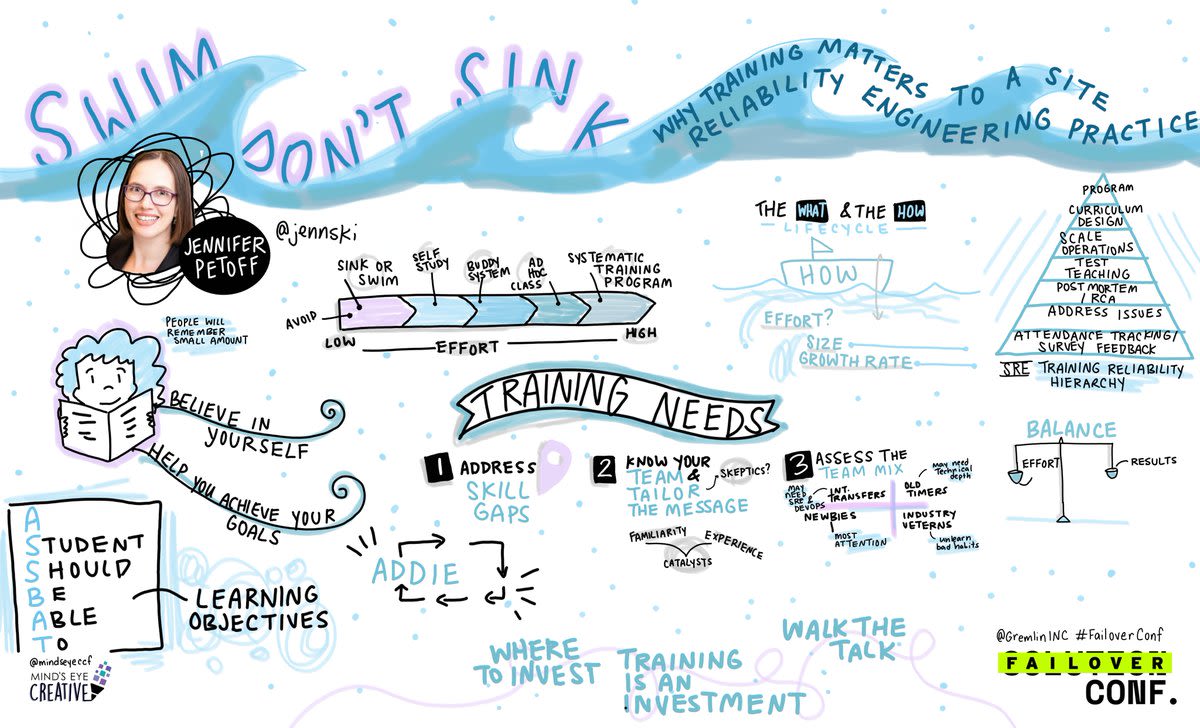 SWIM
DON'T SINK
WHY TRAINING MATTERS TO A SITE
RELIABILITY ENGINEERING PRACTICE
JENNIFER
PETOFF
@jennski
SINK OR
SWIM
SELF
STUDY
BUDDY
SYSTEM
AD
HOC
CLASS
SYSTEMATIC
TRAINING
PROGRAM
AVOID
LOW
EFFORT
HIGH
THE WHAT & THE HOW
LIFECYCLE
HOW
EFFORT?
SIZE
GROWTH RATE
PROGRAM
CURRICULUM
DESIGN
SCALE
OPERATIONS
TEST
TEACHING
POSTMORTEM
/RCA
ADDRESS ISSUES
ATTENDANCE TRACKING/
SURVEY FEEDBACK
SRE TRAINING RELIABILITY
HIERARCHY
PEOPLE WILL
REMEMBER
SMALL AMOUNT
BELIEVE IN
YOURSELF
HELP YOU ACHIEVE YOUR
GOALS
TRAINING NEEDS
1 ADDRESS
SKILL
GAPS
2 KNOW YOUR
TEAM &
TAILOR
THE MESSAGE
SKEPTICS?
FAMILIARITY
EXPERIENCE
CATALYSTS
3 ASSESS THE
TEAM MIX
MAY
NEED
SRE &
DEVOPS
INT.
TRANSFERS
OLD
TIMERS
may need
Technical
depth
NEWBIES
MOST
ATTENTION
INDUSTRY
VETERNS
unlearn
bad habits
BALANCE
EFFORT
RESULTS
A
STUDENT
SHOULD
BE
ABLE
TO
LEARNING
OBJECTIVES
ADDIE
WHERE
TO INVEST
TRAINING
IS AN
INVESTMENT
WALK THE
TALK
@mindseyeccf
MIND'S EYE
CREATIVE
@GremlinINC #FailoverConf
FAILOVER
CONF.